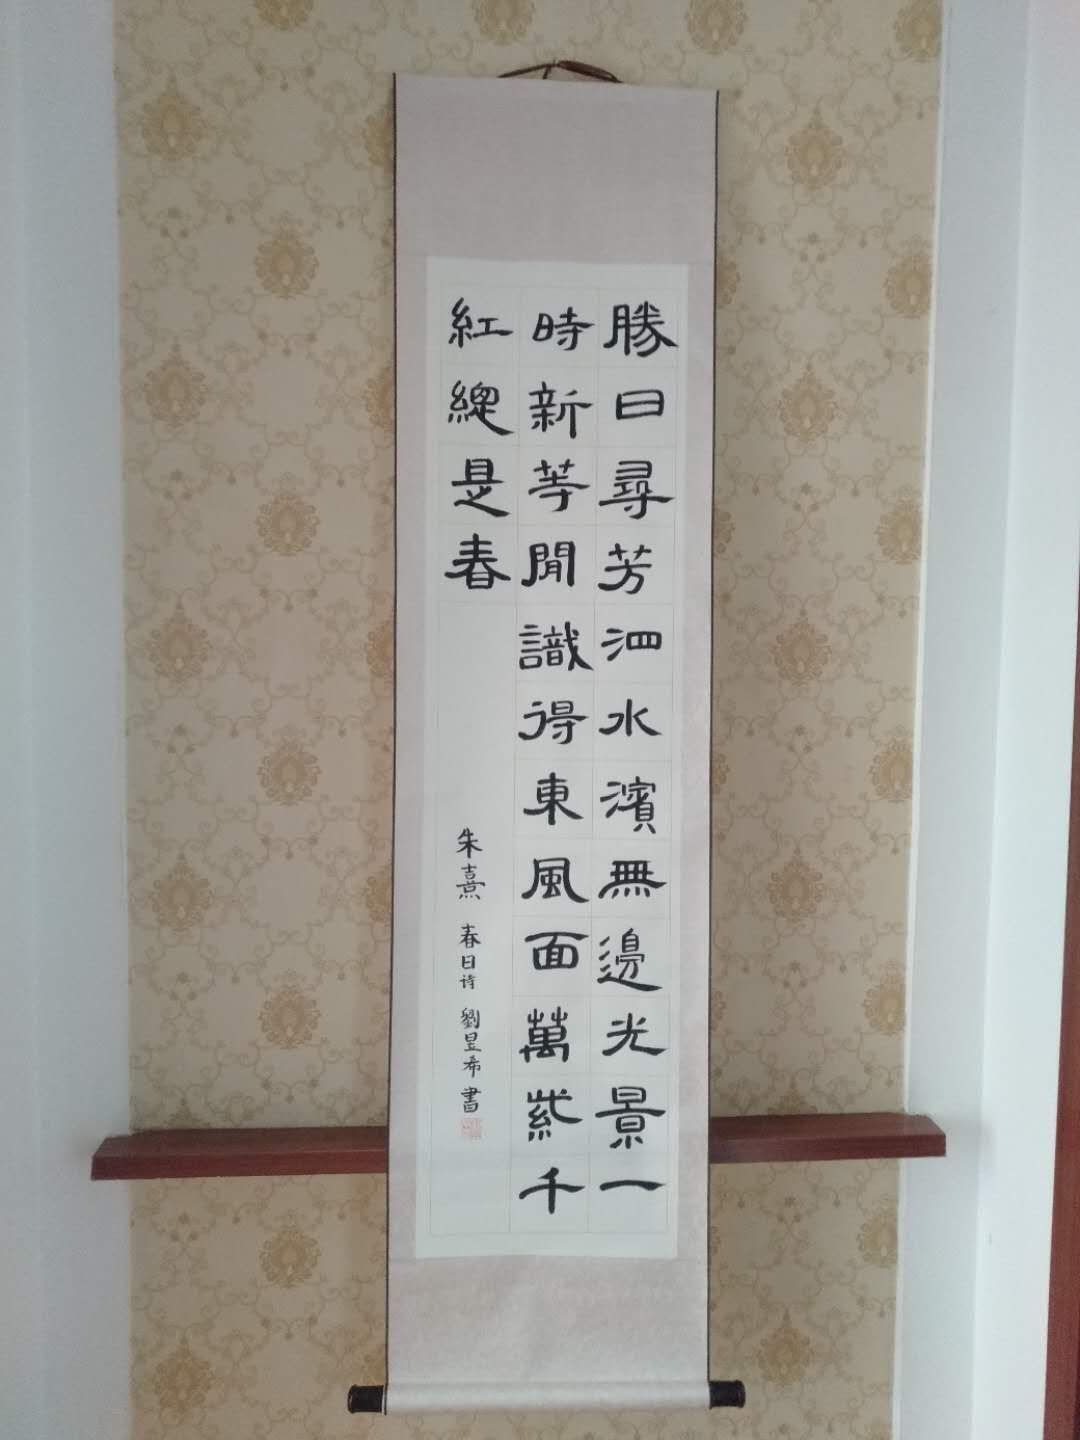 勝日尋芳泗水濱無邊光景一
時新等閒識得東風面萬紫千
紅總是春
朱熹 春日诗 劉昱希書